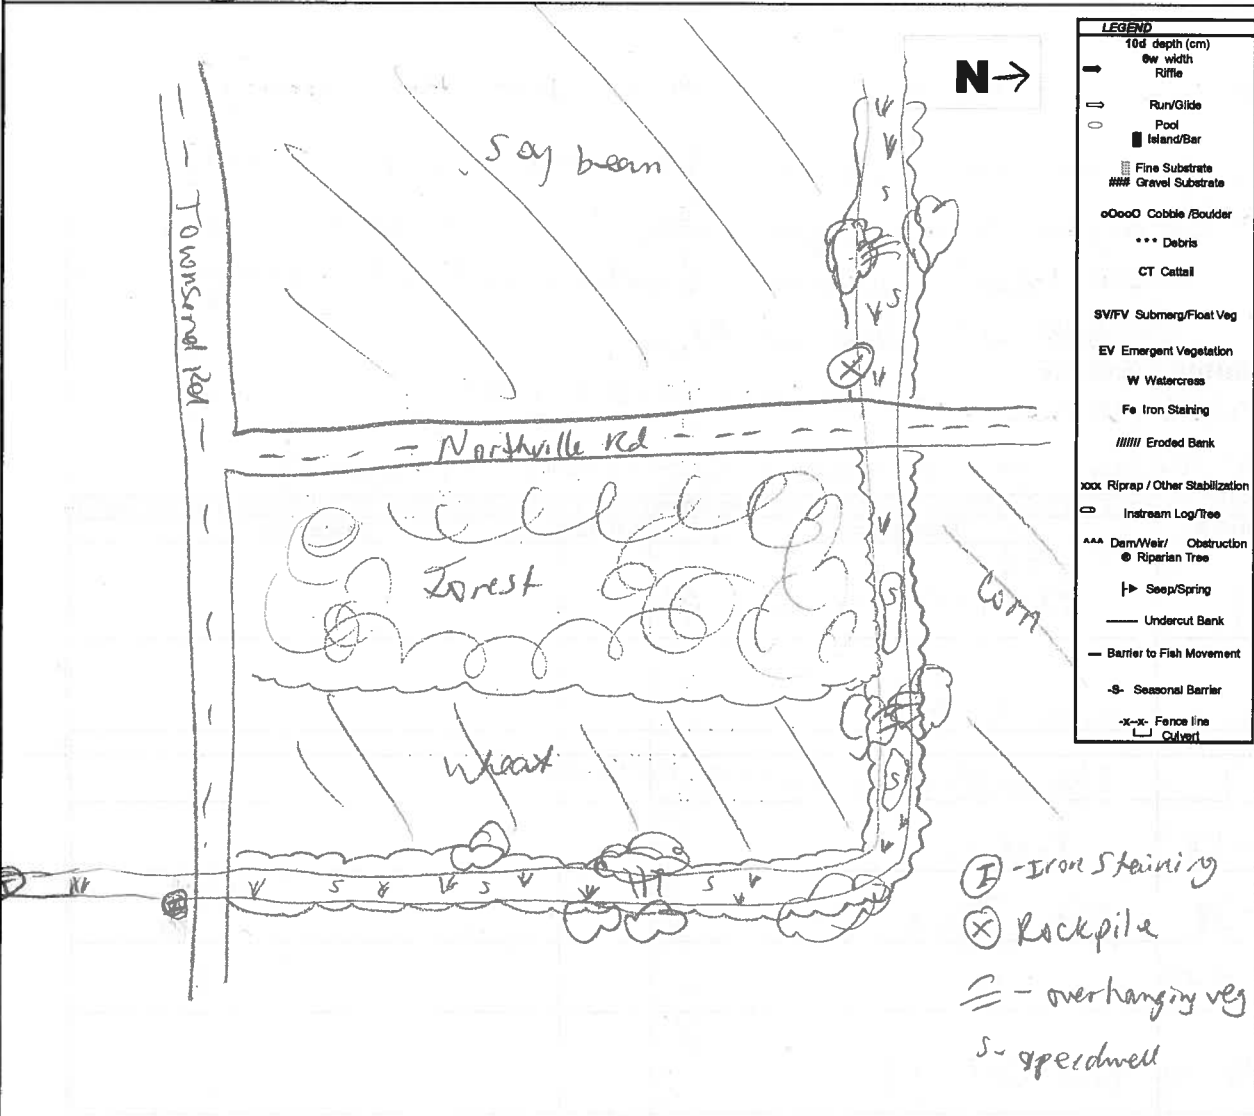 N
LEGEND
10d depth (cm)
6w width
Riffle
Run/Glide
Pool
Island/Bar
Fine Substrate
### Gravel Substrate
oOooO Cobble /Boulder
*** Debris
CT Cattail
SV/FV Submerg/Float Veg
EV Emergent Vegetation
W Watercress
Fe Iron Staining
/////// Eroded Bank
xxx Riprap / Other Stabilization
Instream Log/Tree
^^^ Dam/Weir/ Obstruction
Riparian Tree
Seep/Spring
Undercut Bank
Barrier to Fish Movement
-S- Seasonal Barrier
-x--x- Fence line
Culvert
Soy bean
Townsend Rd
S
S
X
Northville Rd
Forest
S
Corn
Wheat
S
S
S
S
I
I
I - Iron Staining
X Rockpile
- overhanging veg
S - speedwell